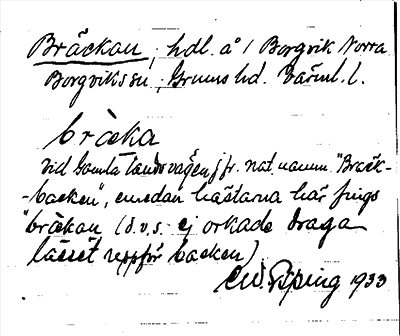 Bräckan, hdl. å 1 Borgvik Norra
Borgviks sn, Grums hd. Värml. l.
bràcka
vid Gamla landsvägen jfr. nat. namn "Bräck-
-backen", emedan hästarna här fingo
"bräckan (d.v.s. ej orkade draga
lasset uppför backen)
1933